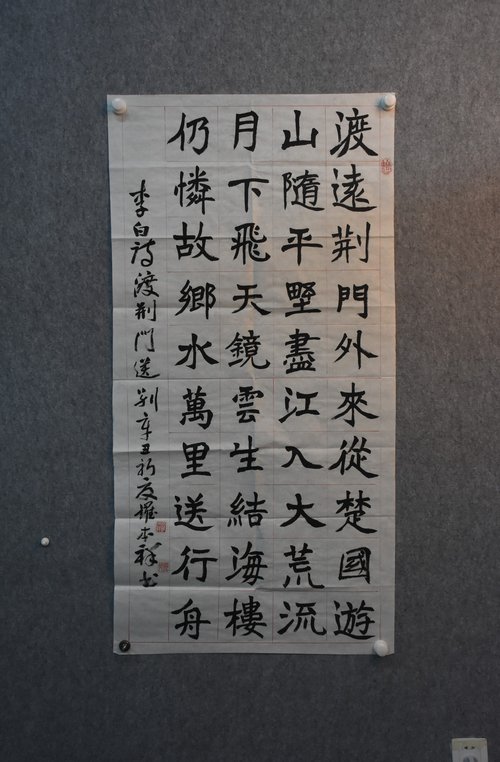 渡遠荆門外來從楚國遊
山隨平墅盡江入大荒流
月下飛天鏡雲生結海樓
仍憐故鄉水萬里送行舟
李白诗渡荆門送别辛丑初夏本祥书